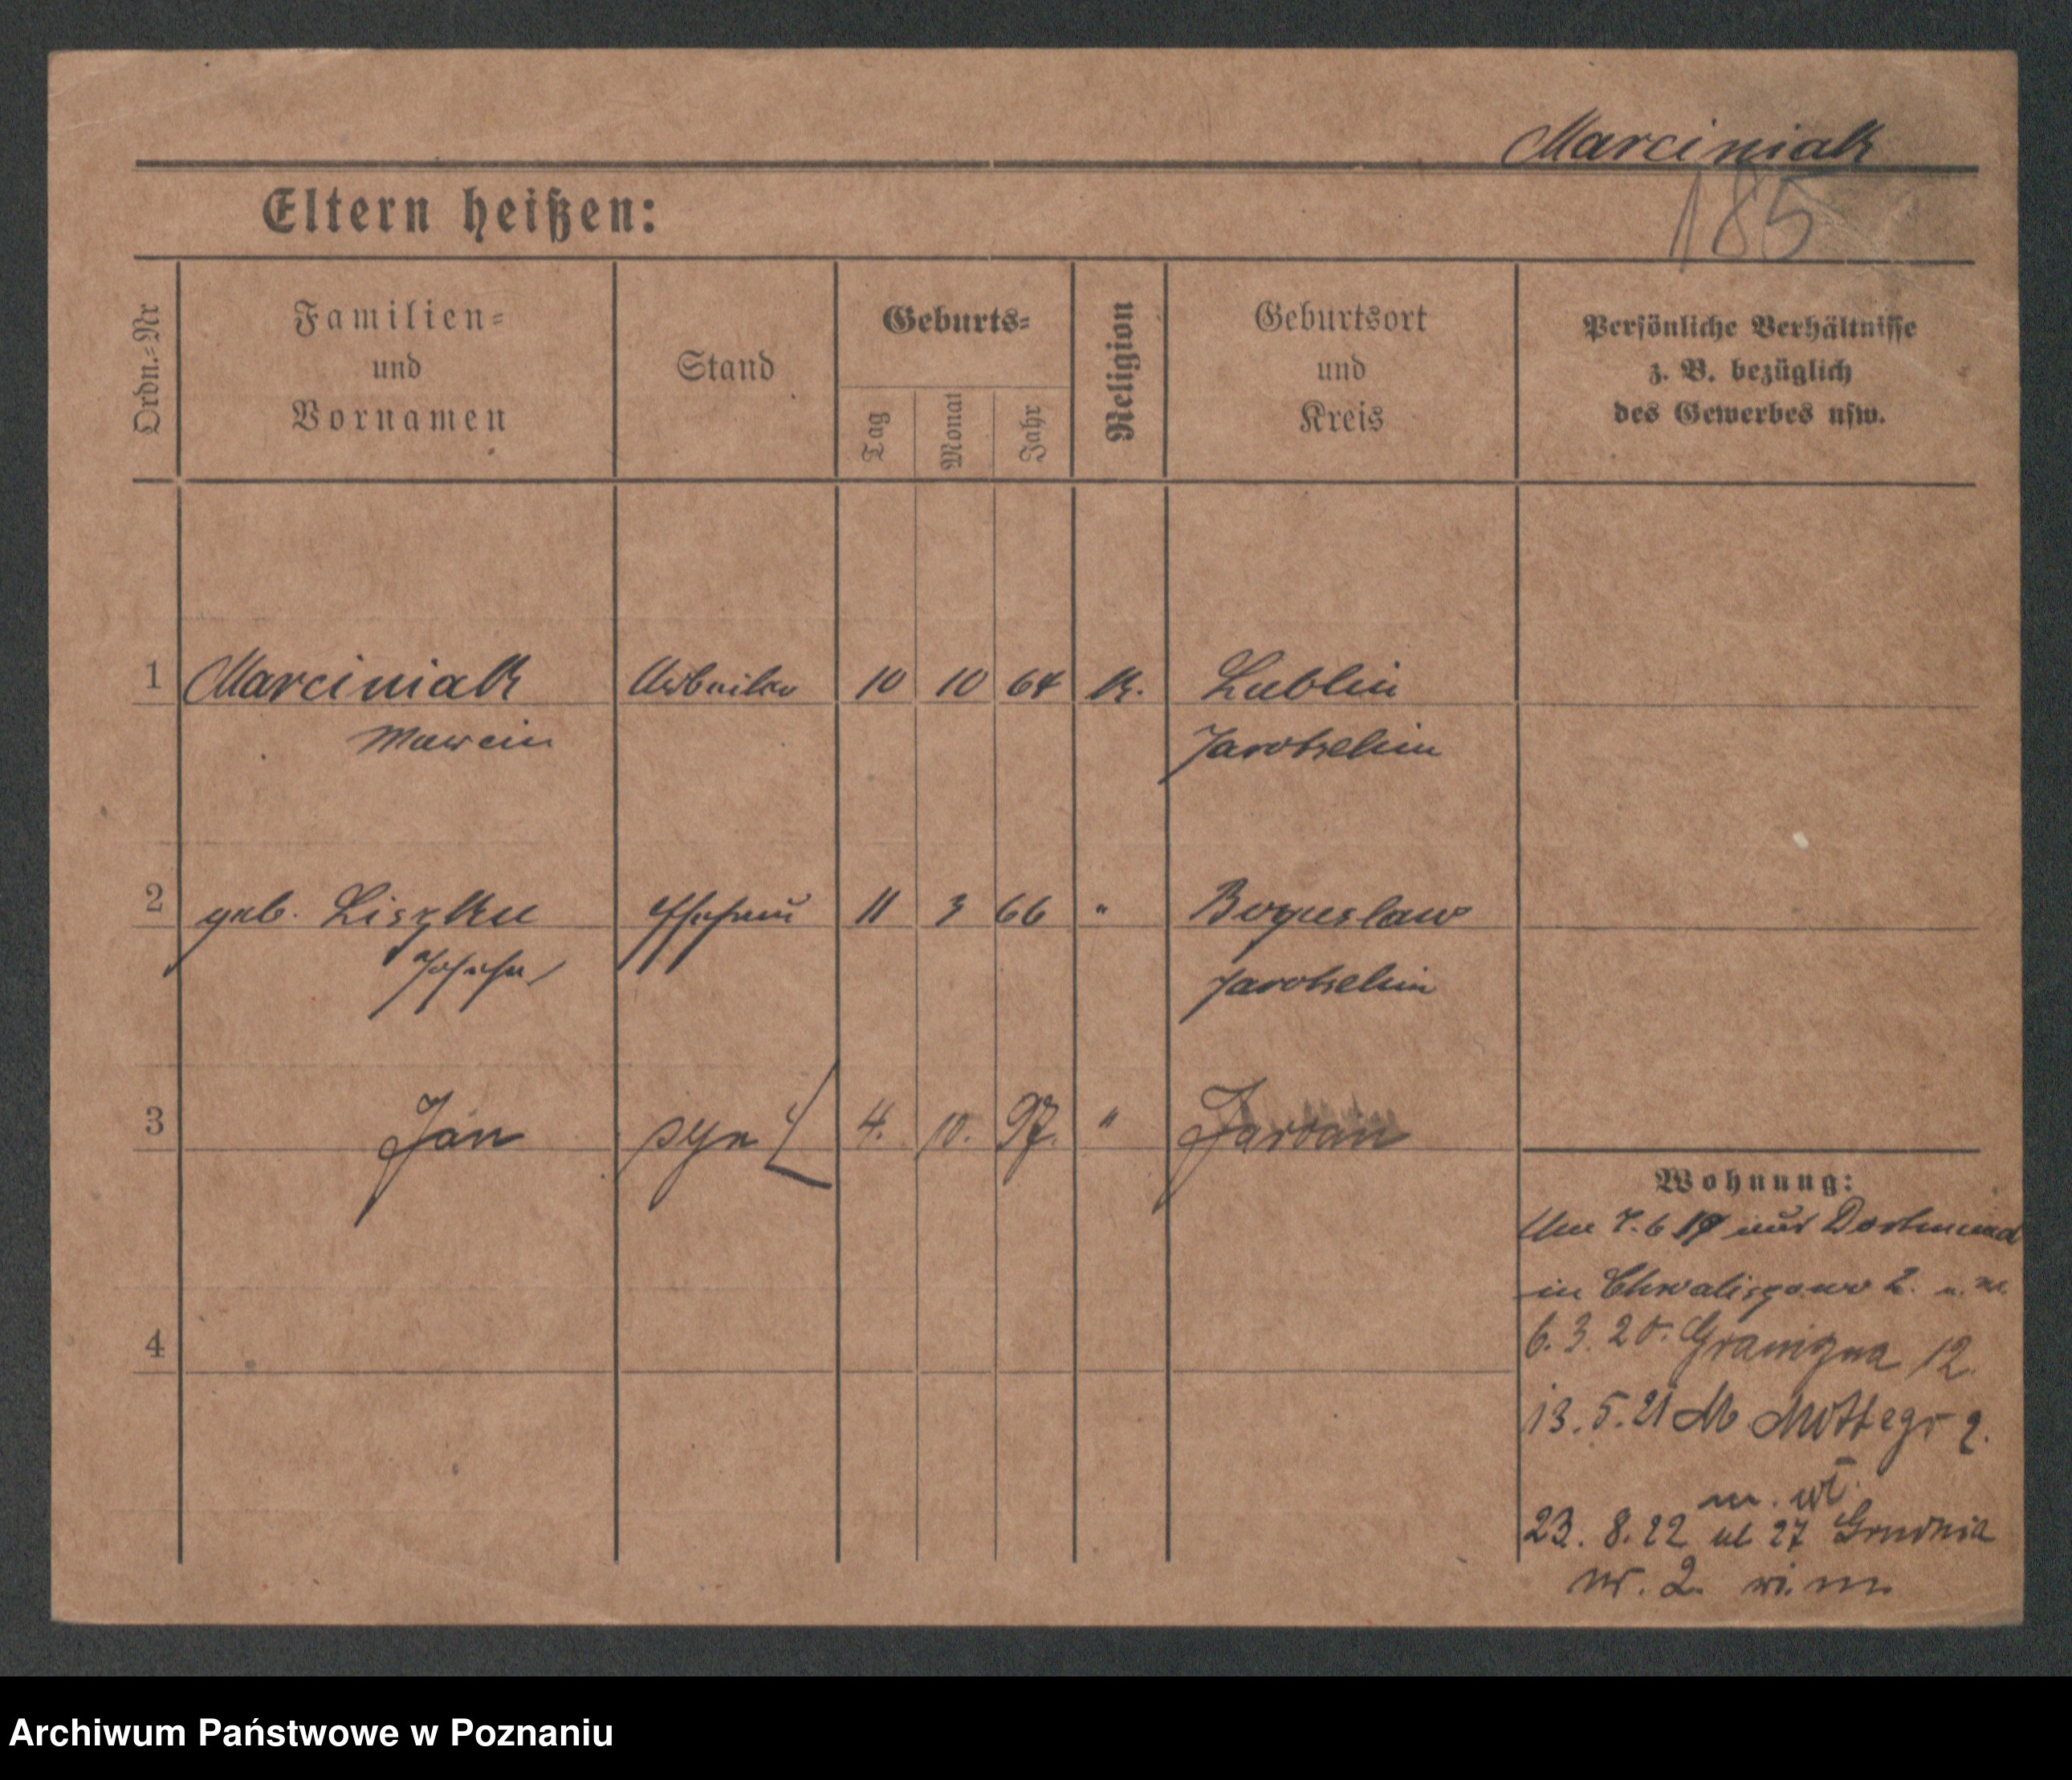 Marciniak
185
Eltern heißen:
Ordn.=Nr
Familien=
und
Vornamen
Stand
Geburts=
Tag
Monat
Jahr
Religion
Geburtsort
und
Kreis
Persönliche Verhältnisse
z. B. bezüglich
des Gewerbes usw.
1 Marciniak 10 10 64 K. Lublin
Marcin Jarotschin
2 geb. Liszka Ehefrau 11 3 66 " Boguslaw
Josefa Jarotschin
3 Jan syn 4. 10. 97. "
Wohnung:
7.6.19 aus Dortmund
in Chwaliszewo 2.
4
6.3.20. Graniczna 12
13.5.21 M 2.
23.8.22 ul 27 Grudnia
nr. 2
Archiwum Państwowe w Poznaniu